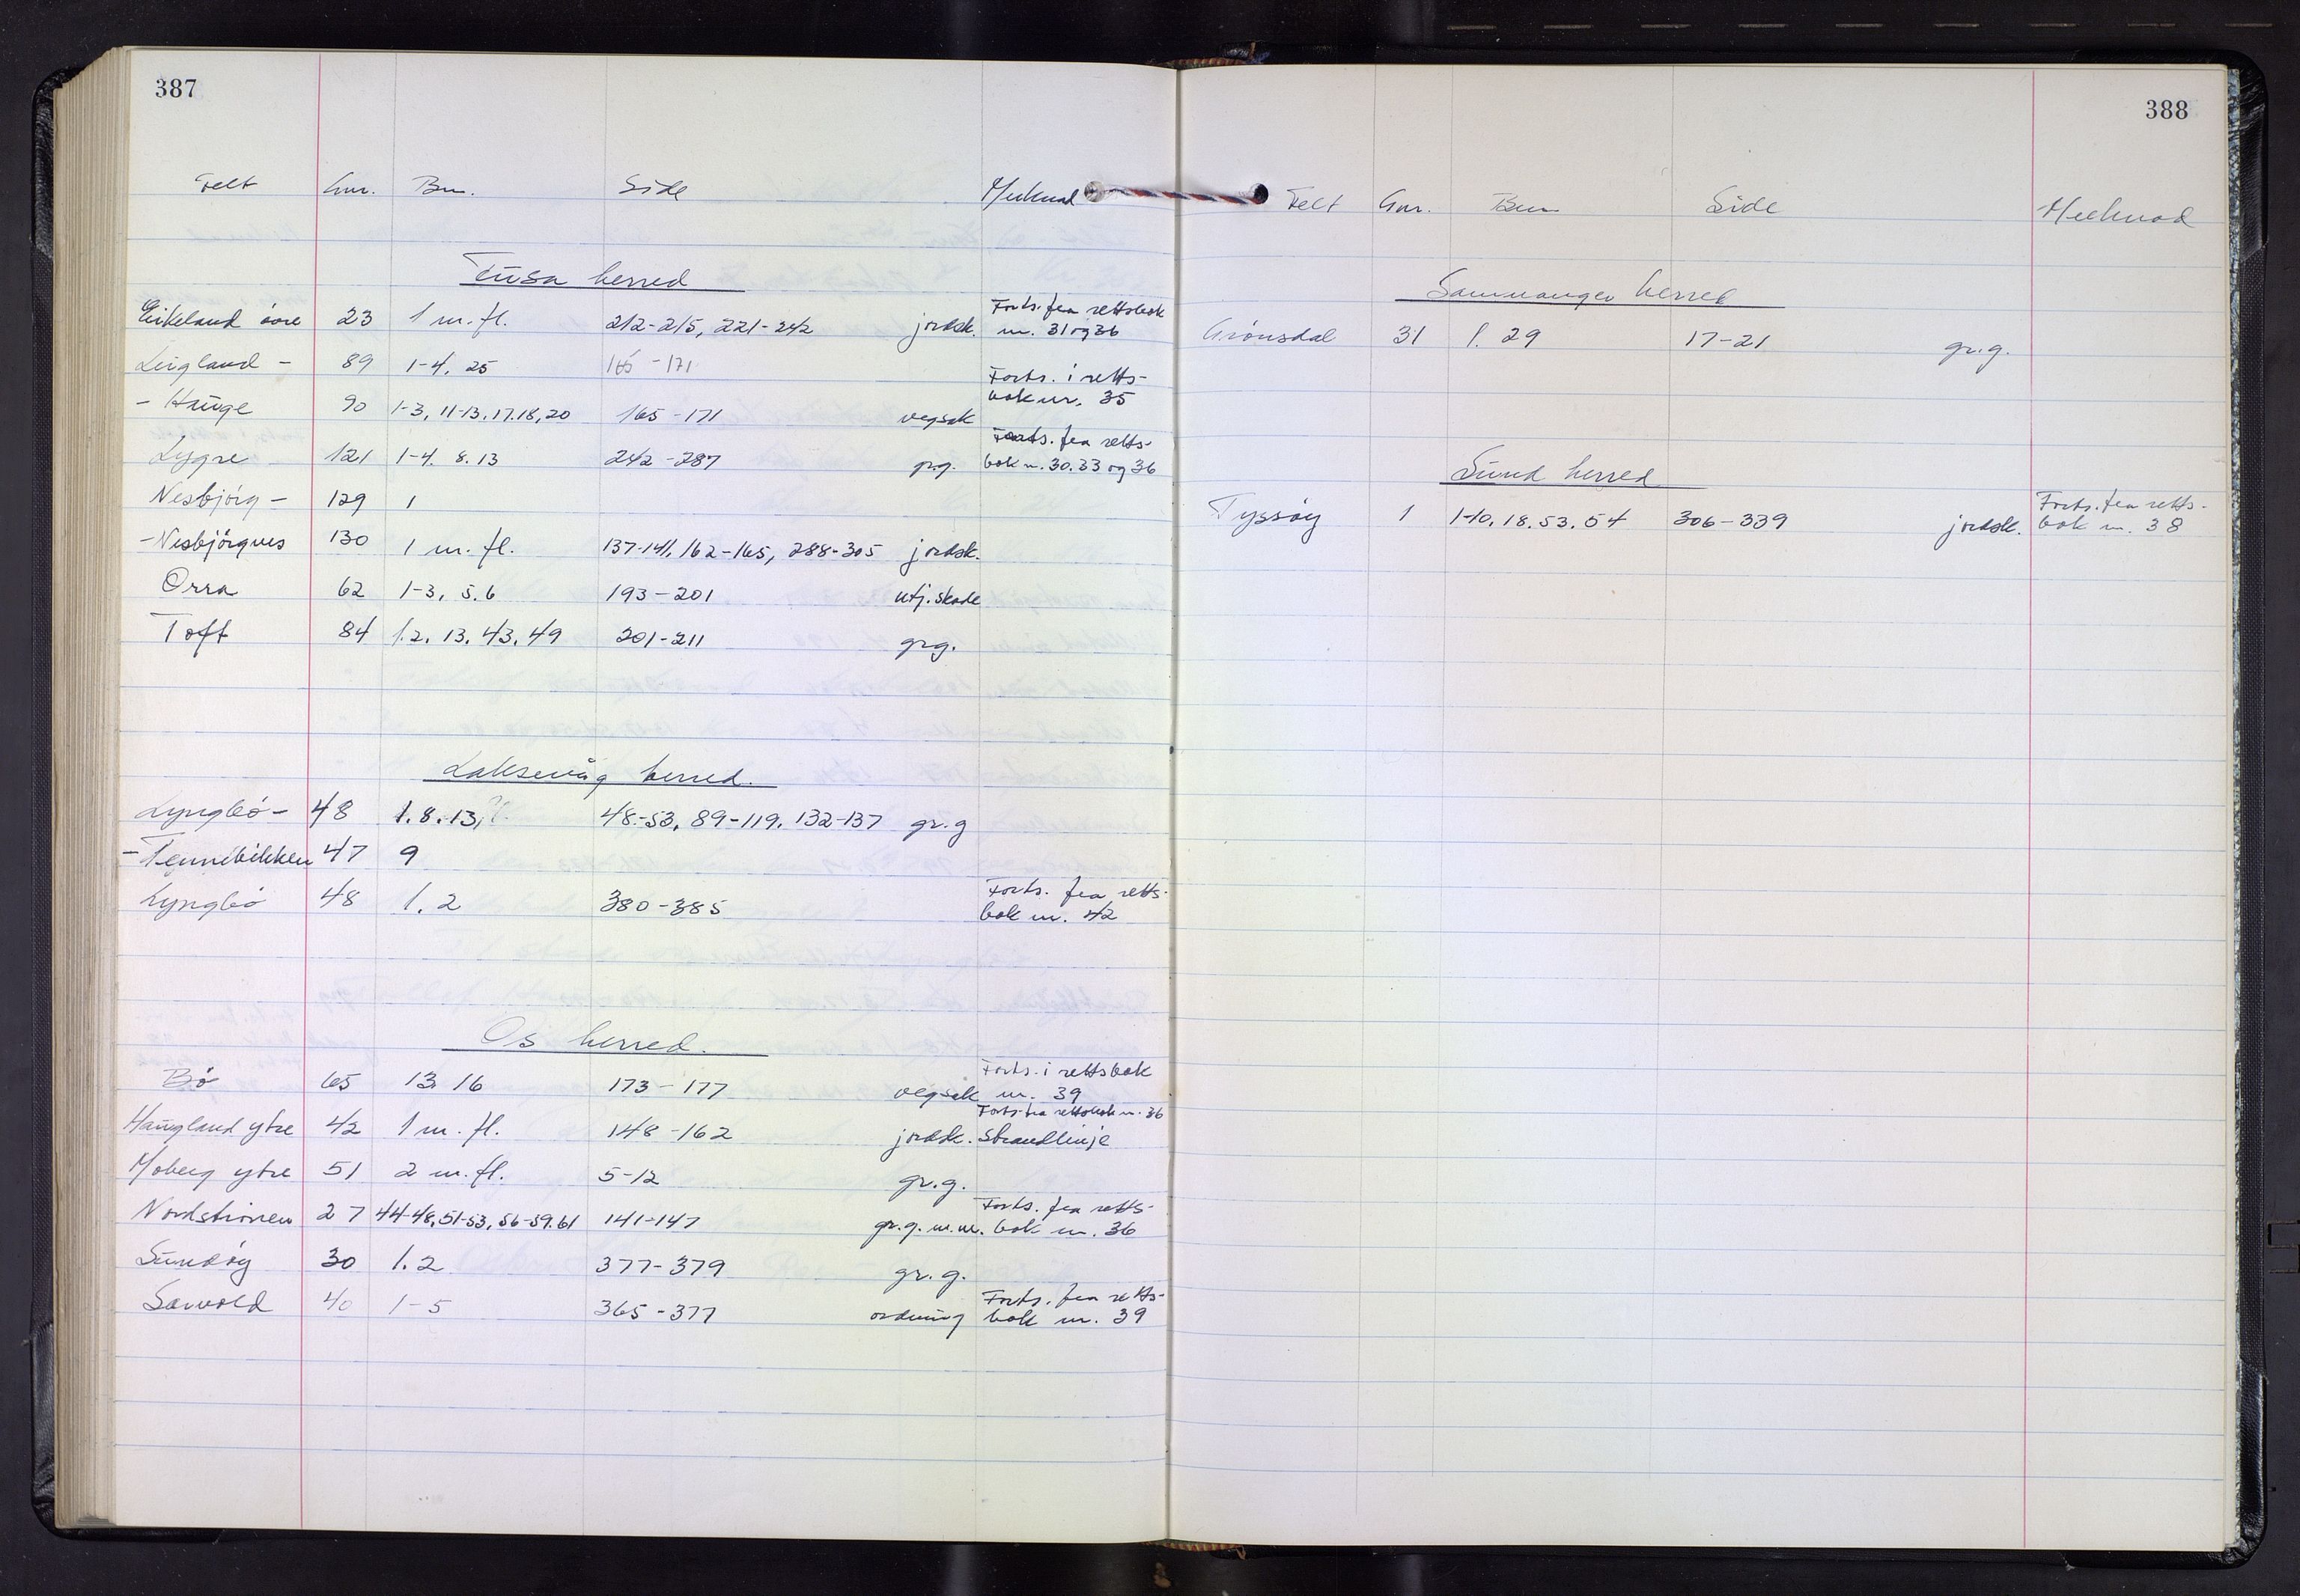 387
Felt Gnr. Bnr. Side Merknad
Fusa herred
Eikeland övre 23 1 m.fl. 212-215, 221-242 jordsk. Forts. fra rettsbok
nr. 31 og 36
Leigland - 89 1-4, 25 165 - 171
Forts. i retts-
- Hauge 90 1-3, 11-13, 17.18, 20 165 - 171 vegsak bok nr. 35
Forts. fra retts-
Lygre 121 1-4. 8.13 242 - 287 gr.g. bok nr. 30.33 og 36
Nesbjörg - 129 1
- Nesbjörgnes 130 1 m.fl. 137-141, 162-165, 288-305 jordsk.
Orra 62 1-3, 5.6 193-201 utj.skade
Toft 84 1.2, 13, 43, 49 201-211 gr.g.
Laksevåg herred.
Lyngbö - 48 1.8.13, 48-53, 89-119, 132-137 gr.g
- Tennebekken 47 9
Lyngbö 48 1.2 380-385 Forts. fra retts-
bok nr. 42
Os herred.
Bö 65 13, 16 173-177 vegsak Forts. i rettsbok
nr. 39
Haugland ytre 42 1 m.fl. 148-162 jordsk. Forts. fra rettsbok nr. 36
Strandlinje
Moberg ytre 51 2 m.fl. 5-12 gr.g.
Nordströnen 27 44-48, 51-53, 56-59.61 141-147 gr.g. m.m. Forts. fra retts-
bok nr. 36
Sundöy 30 1.2 377-379 gr.g.
Sørvold 40 1-5 365-377 ordning Forts. fra retts-
bok nr. 39
388
Felt Gnr. Bnr Side Merknad
Samnanger herred
Grönsdal 31 1. 29 17-21 gr.g.
Sund herred
Tyssöy 1 1-10, 18. 53. 54 306-339 jordsk. Forts. fra retts-
bok nr. 38